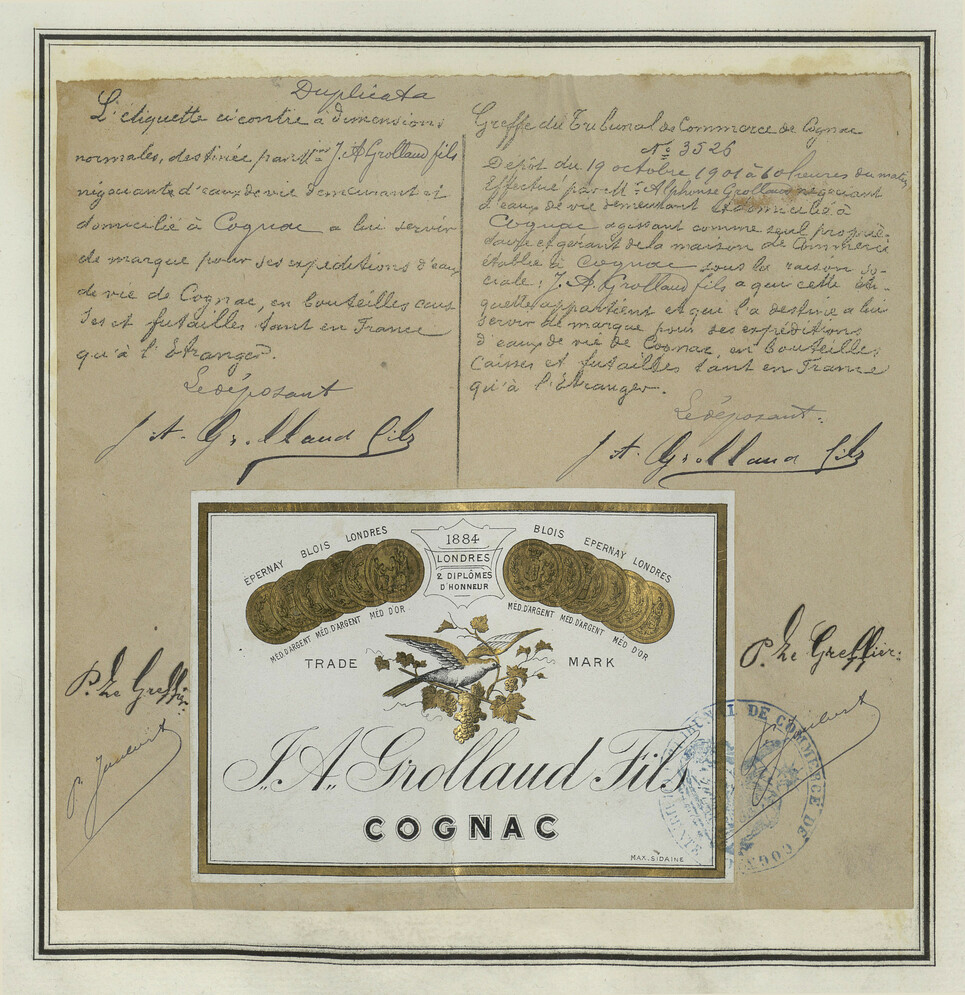 Duplicata
L'etiquette ci contre à dimensions
normales, destinée par Mr J. A Grollaud fils
négociants d'eaux de vie demeurant et
domicilié à Cognac a lui servir
de marque pour ses expeditions d'eaux
de vie de Cognac, en bouteilles cais
ses et futailles tant en France
qu'à l'Etranger.
Le déposant
J. A. Grollaud fils
Greffe du Tribunal de Commerce de Cognac
No 3526
Depôt du 19 octobre 1901 à heures du matin
Effectué par Mr Alphonse Grollaud négociant
d'eaux de vie demeurant et domicilié à
Cognac agissant comme seul proprié-
taire et gérant de la maison de Commerce
établie à Cognac sous la raison so-
ciale: J. A. Grollaud fils a qui cette éti-
quette appartient et qui l'a destinée a lui
servir de marque pour ses expéditions
d'eaux de vie de Cognac, en bouteilles
Caisses et futailles tant en France
qu'à l'Etranger.
Le déposant.
J. A. Grollaud fils
EPERNAY BLOIS LONDRES
1884
LONDRES
2 DIPLÔMES
D'HONNEUR
BLOIS EPERNAY LONDRES
MED D'ARGENT MED D'ARGENT MED D'OR
MED. D'ARGENT MED. D'ARGENT MED D'OR
TRADE MARK
J. A. Grollaud Fils
COGNAC
MAX. SIDAINE
P. Le Greffier
P. Le Greffier:
TRIBUNAL DE COMMERCE DE COGNAC